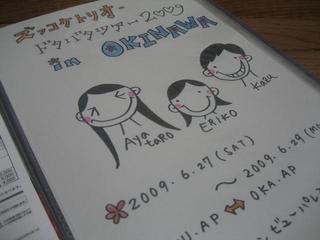 ズッコケトリオの
ドタバタツアー2009
in OKINAWA
Aya
taRO
ERiKO
Kazu
2009.6.27 (SAT)
～ 2009.6.29 (M
.AP ⇔ OKA.AP
ビューパレス